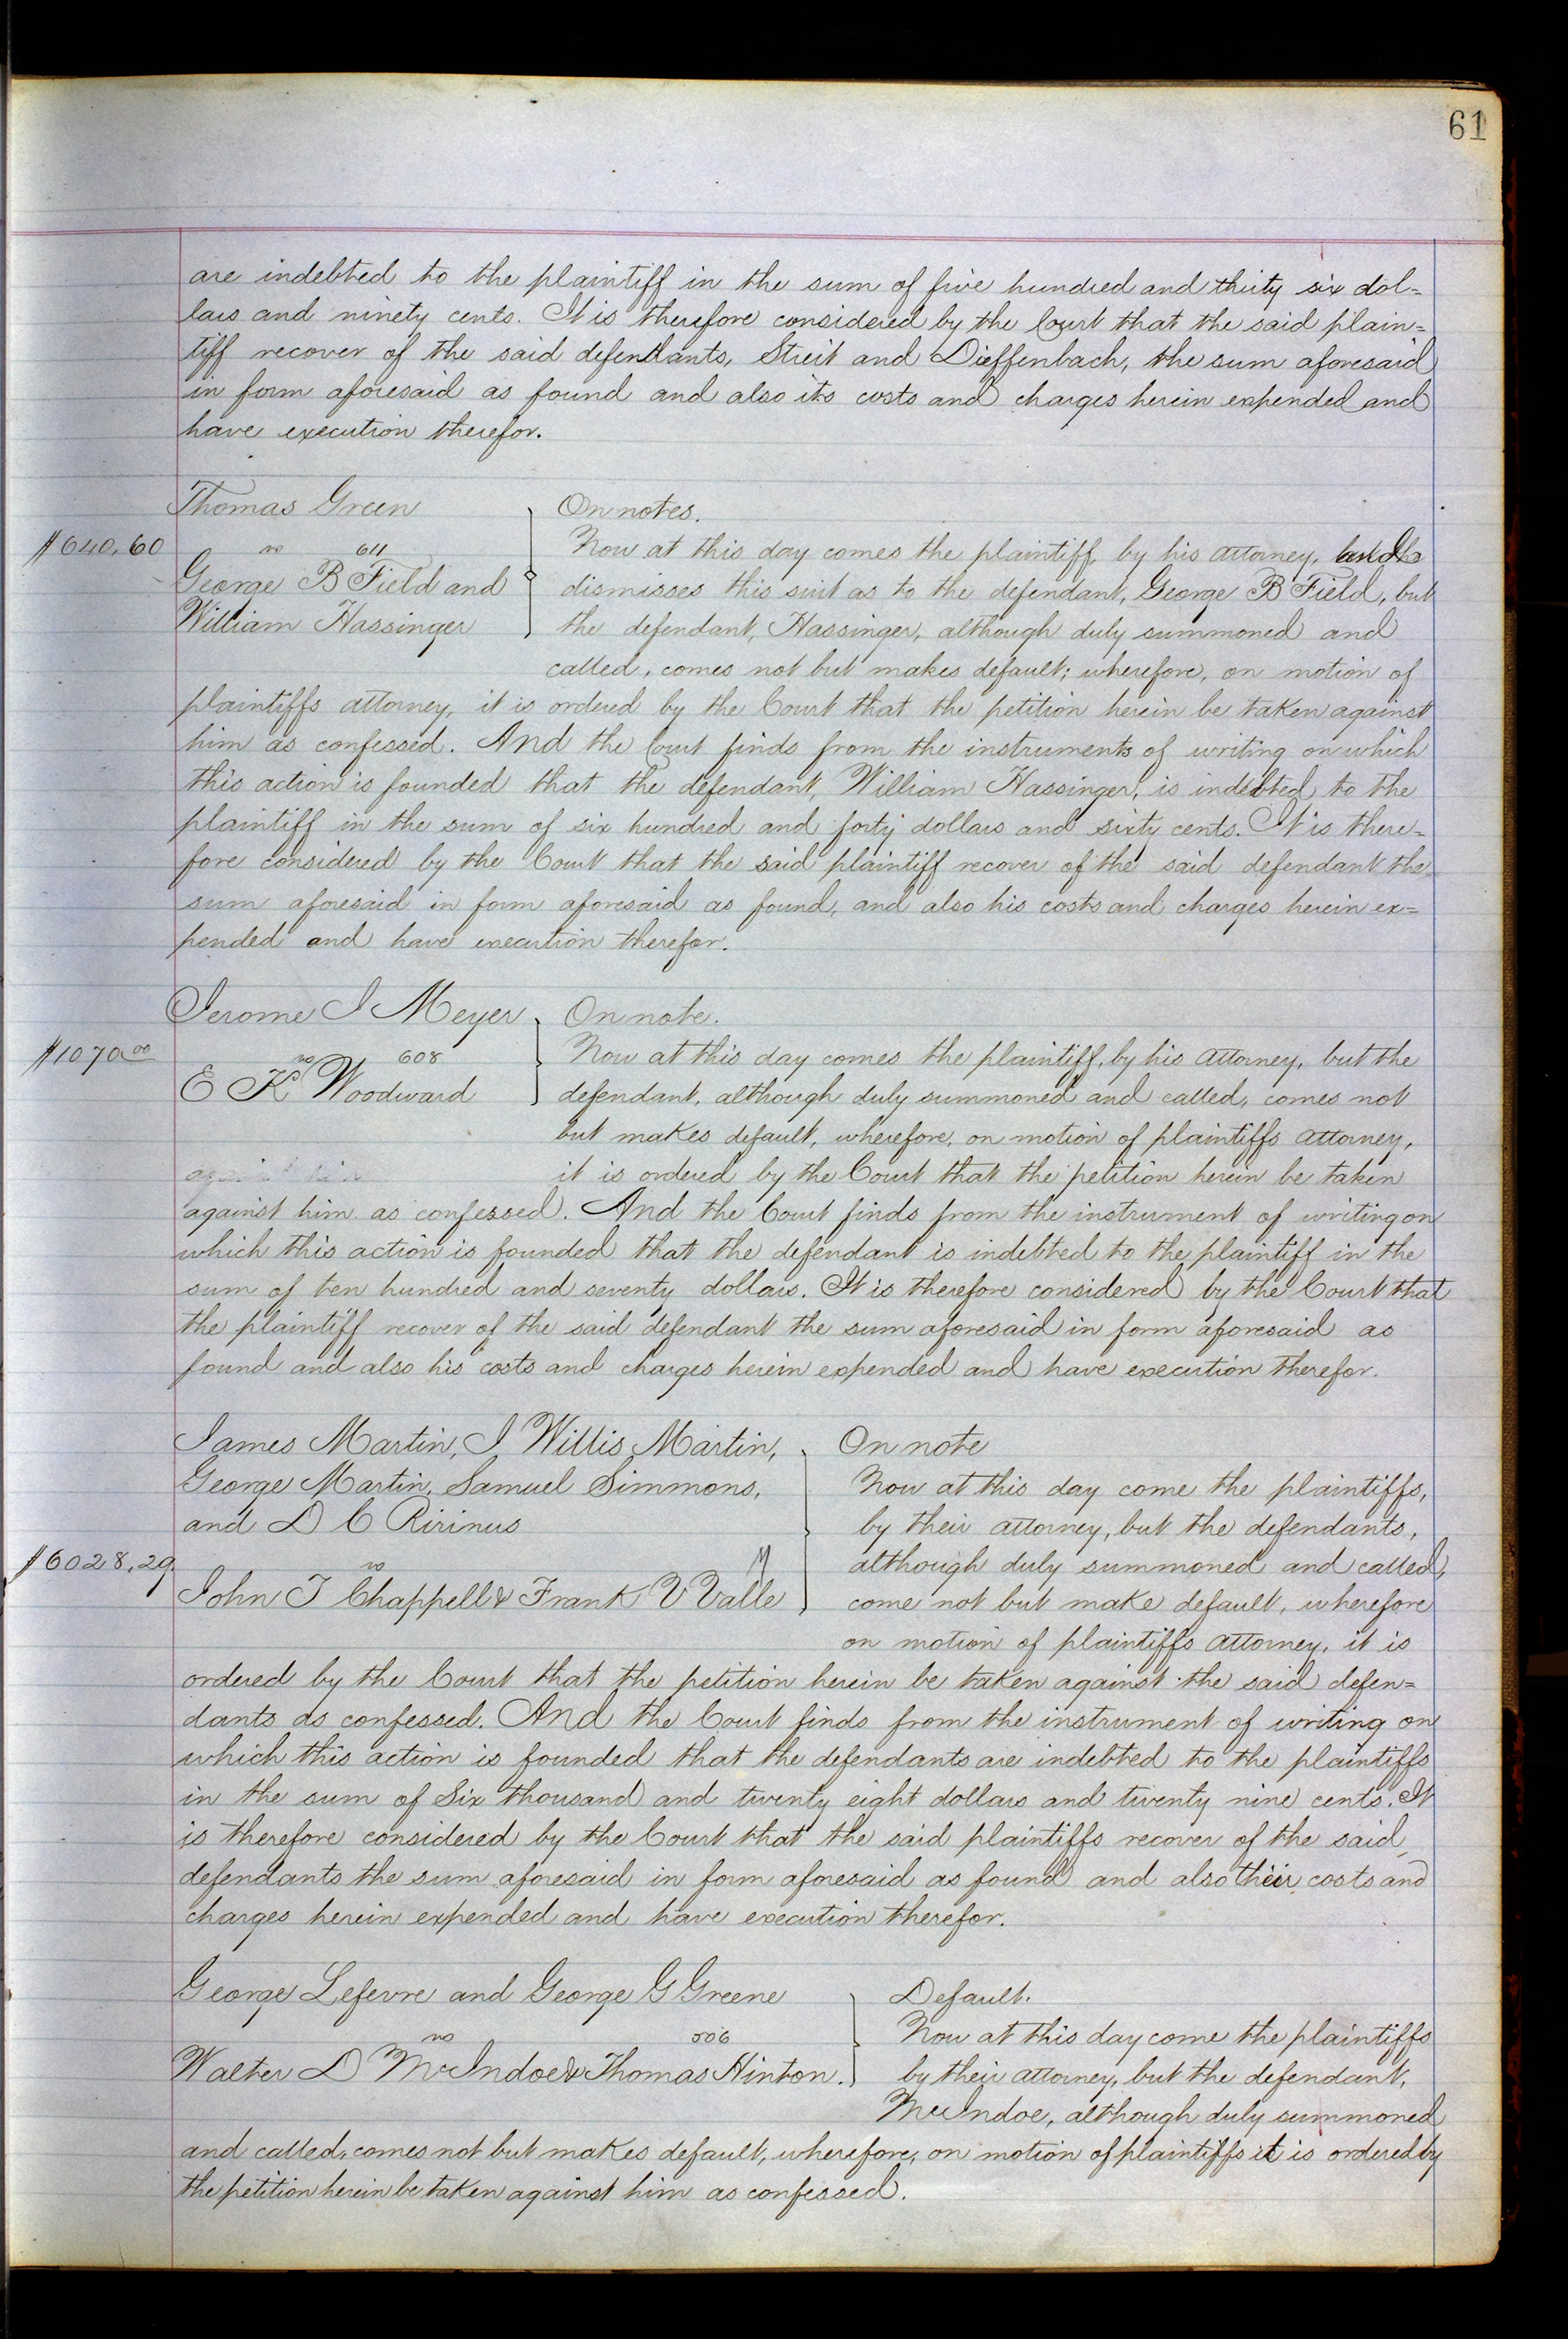 61
are indebted to the plaintiff in the sum of five hundred and thirty six dol=
lars and ninety cents. It is therefore considered by the Court that the said plain=
tiff recover of the said defendants, Streit and Dieffenbach, the sum aforesaid
in form aforesaid as found and also its costs and charges herein expended and
have execution therefor.
Thomas Green
$640,60
vs 611
George B Field and
William Hassinger
On notes.
Now at this day comes the plaintiff, by his attorney, and he
dismisses this suit as to the defendant, George B Field, but
the defendant, Hassinger, although duly summoned and
called, comes not but makes default; wherefore, on motion of
plaintiffs attorney, it is ordered by the Court that the petition herein be taken against
him as confessed. And the Court finds from the instruments of writing on which
this action is founded that the defendant, William Hassinger, is indebted to the
plaintiff in the sum of six hundred and forty dollars and sixty cents. It is there=
fore considered by the Court that the said plaintiff recover of the said defendant the
sum aforesaid in form aforesaid as found, and also his costs and charges herein ex=
pended and have execution therefor.
Jerome J Meyer
$1070.00
vs 608
E K Woodward
On note.
Now at this day comes the plaintiff, by his attorney, but the
defendant, although duly summoned and called, comes not
but makes default, wherefore, on motion of plaintiffs attorney,
it is ordered by the Court that the petition herein be taken
against him as confessed. And the Court finds from the instrument of writing on
which this action is founded that the defendant is indebted to the plaintiff in the
sum of ten hundred and seventy dollars. It is therefore considered by the Court that
the plaintiff recover of the said defendant the sum aforesaid in form aforesaid as
found and also his costs and charges herein expended and have execution therefor.
James Martin, J Willis Martin,
George Martin, Samuel Simmons,
and D C Ririnus
$6028,29
vs
John T Chappell & Frank V Valle
On note
Now at this day come the plaintiffs,
by their attorney, but the defendants,
although duly summoned and called,
come not but make default, wherefore
on motion of plaintiffs attorney, it is
ordered by the Court that the petition herein be taken against the said defen=
dants as confessed. And the Court finds from the instrument of writing on
which this action is founded that the defendants are indebted to the plaintiffs
in the sum of Six thousand and twenty eight dollars and twenty nine cents. It
is therefore considered by the Court that the said plaintiffs recover of the said
defendants the sum aforesaid in form aforesaid as found and also their costs and
charges herein expended and have execution therefor.
George Lefevre and George G Greene
vs 506
Walter D McIndoe & Thomas Hinton.
Default.
Now at this day come the plaintiffs
by their attorney, but the defendant,
McIndoe, although duly summoned
and called, comes not but makes default, wherefore, on motion of plaintiffs it is ordered by
the petition herein be taken against him as confessed.